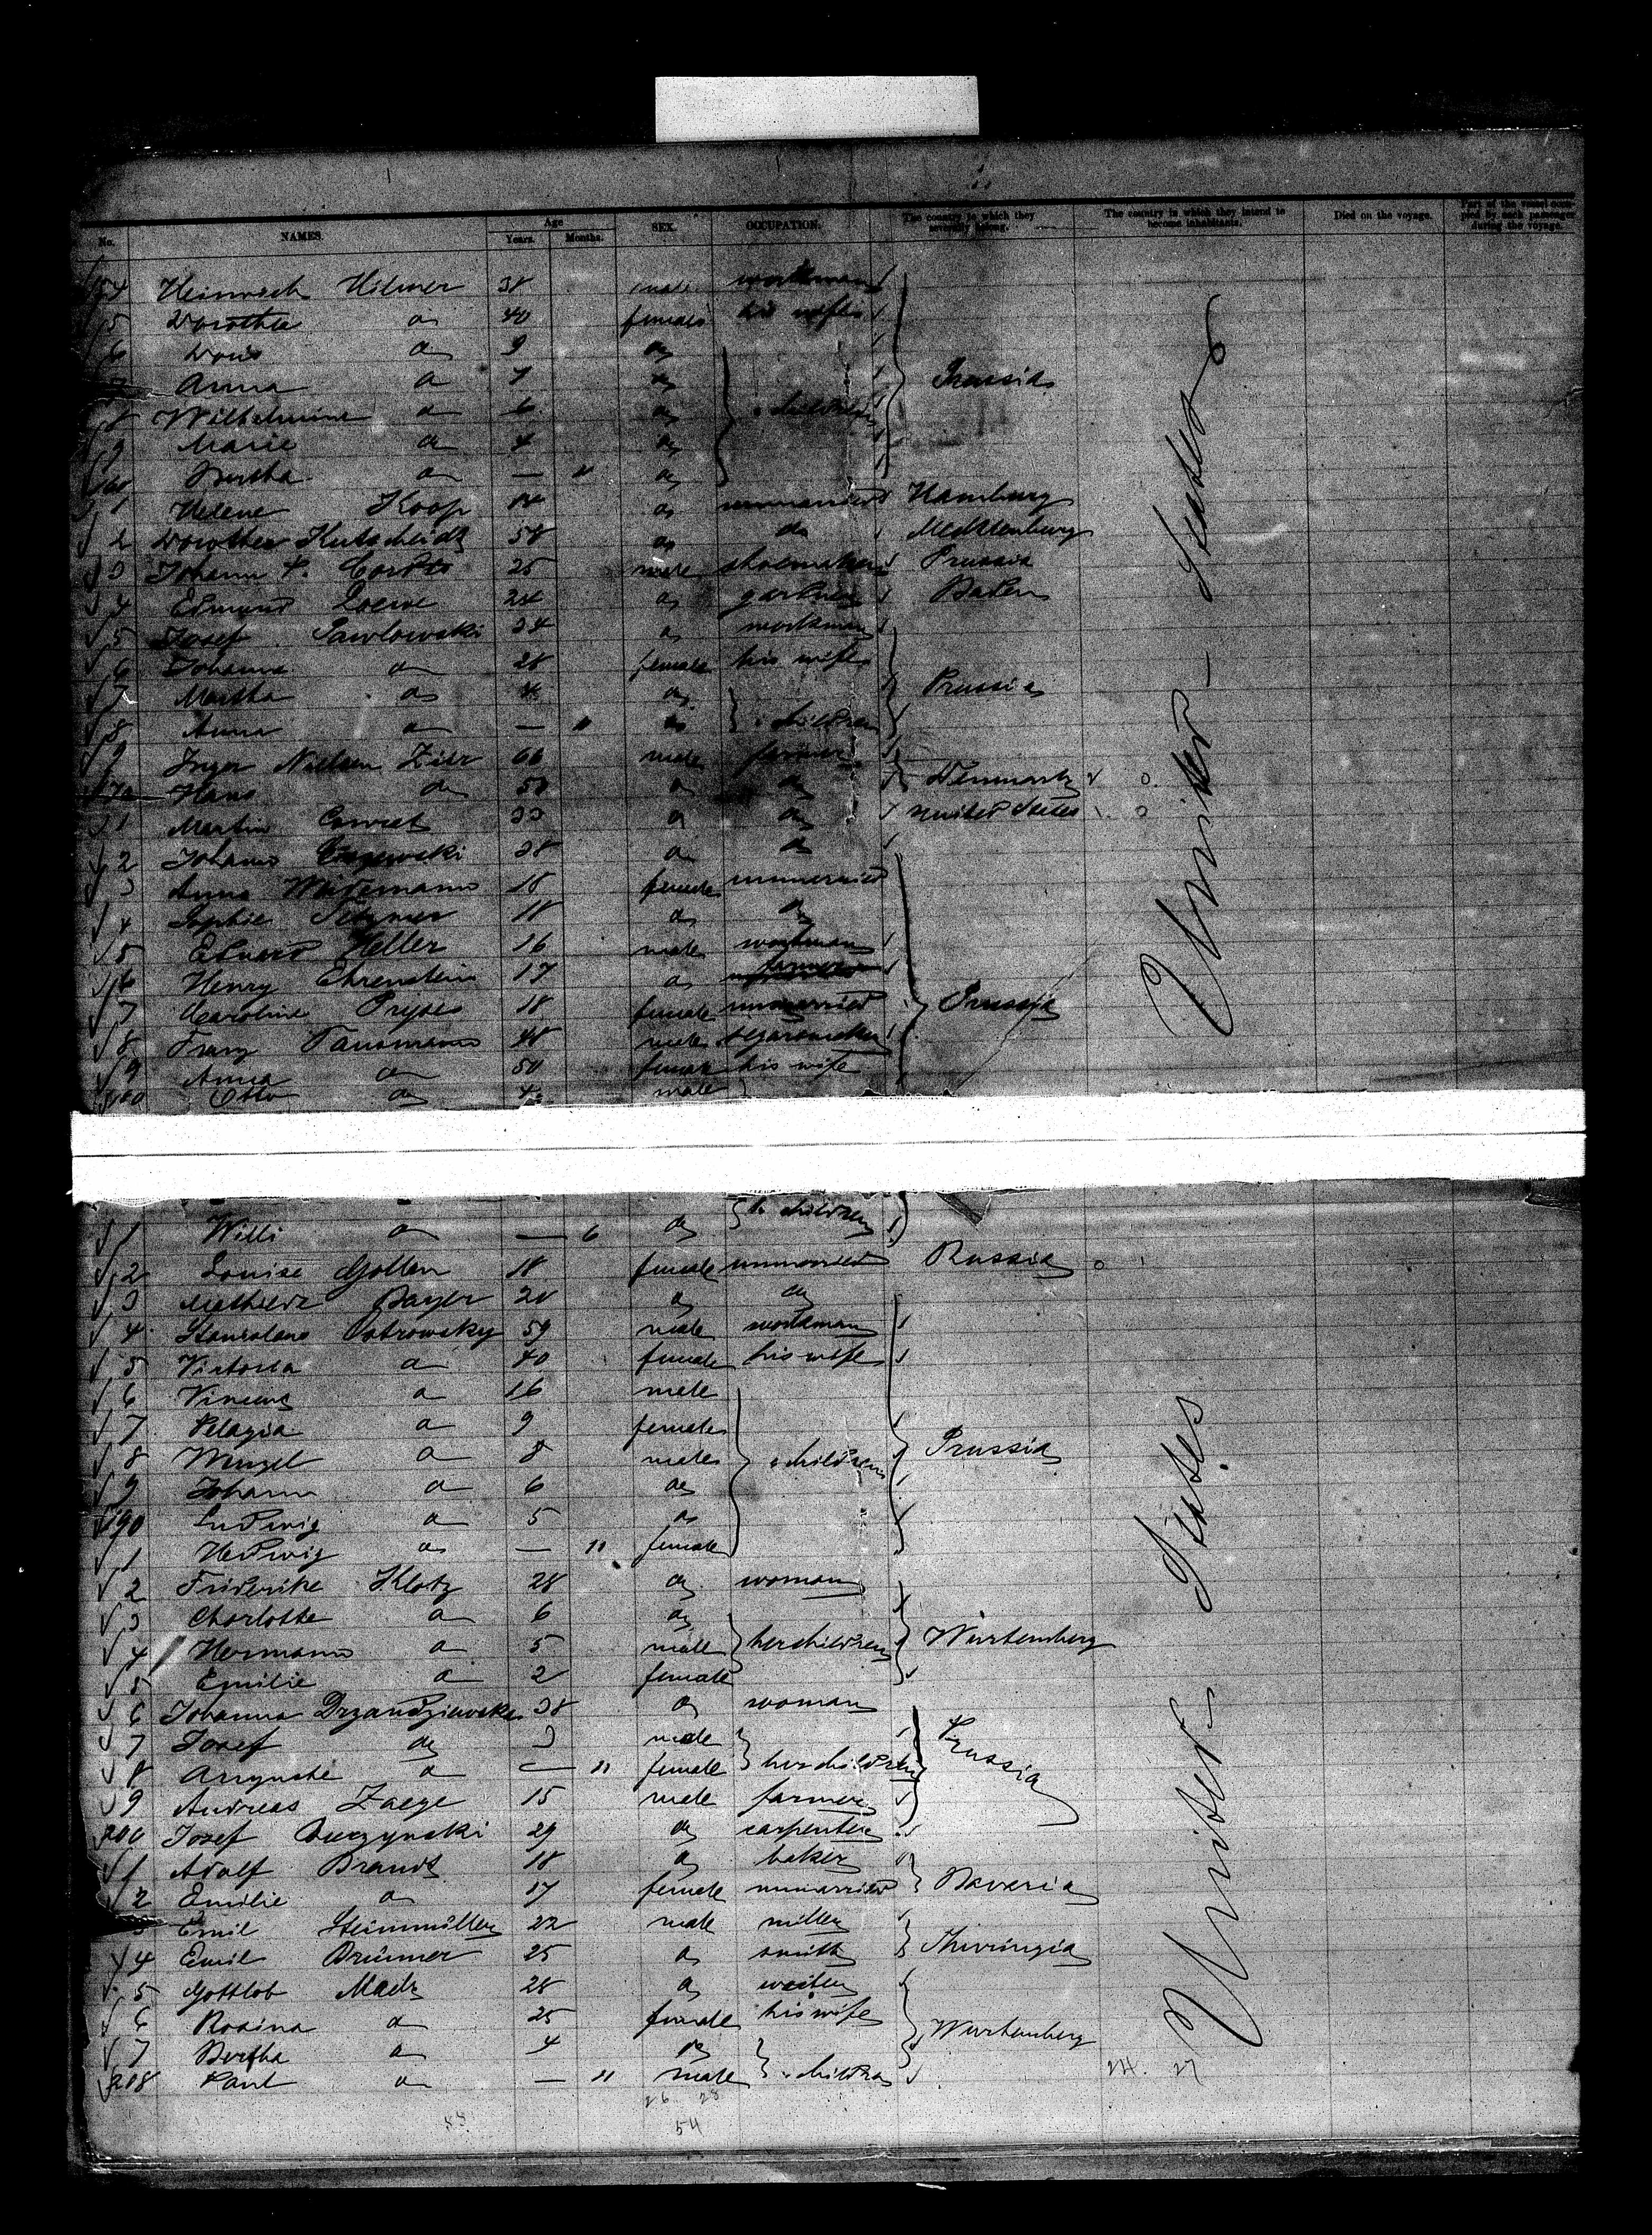 No. NAMES. Age Years. Months. SEX. OCCUPATION. The country to which they severally belong. The country in which they intend to become inhabitants. Died on the voyage. Part of the vessel occupied by each passenger during the voyage.
54 Heinrich Hilmer 38 male workman
5 Dorothea do 40 female his wife
6 Doris do 9 do
7 Anna do 7 do Prussia
8 Wilhelmine do 6 do children
9 Marie do 4 do
60 Bertha do — do
1 Helene Koop do unmarried Hamburg
2 Dorothea Kutscheidt 58 do do Mecklenburg
3 Johann P. Cordts 25 male shoemaker Prussia
4 Edmund Loewe 24 do gardener Baden
5 Josef Pawlowski 34 do workman
6 Johanna do 28 female his wife
7 Martha do 4 do Prussia
8 Anna do — do children
9 Inger Nielsen 66 male farmer
70 Hans do do do Denmark
1 Martin 33 do do United States
2 Johann 38 do do
3 Anna 18 female unmarried
4 Sophie 18 do do
5 Eduard Heller 16 male workman
6 Henry Ehrenstein 17 do farmer
7 Caroline 18 female unmarried Prussia
8 Franz 48 male segarmaker
9 Anna do 50 female his wife
Otto do 4 male
1 Willi do — 6 do children
2 Louise Gollen 18 female unmarried Russia
3 Mathilde Bayer 20 do do
4 Stanislaus Ostrowsky 59 male workman
5 Victoria do 40 female his wife
6 Vincenz do 16 male
7 Pelagia do 9 female
8 do 8 male children Prussia
9 Johann do 6 do
190 Ludwig do 5 do
1 Hedwig do — 11 female
2 Friderike Klotz 28 do woman
3 Charlotte do 6 do
4 Hermann do 5 male her children Würtemberg
5 Emilie do 2 female
6 Johanna Drzandziewska 38 do woman
7 Josef do 3 male Prussia
8 Auguste do — 11 female her children
9 Andreas Zaege 15 male farmer
200 Josef 29 do carpenter
1 Adolf Brandt 18 do baker
2 Emilie do 17 female unmarried Baveria
3 Emil Steinmüller 22 male miller
4 Emil Brünner 25 do smith Thuringia
5 Gottlob Mack 28 do
6 Rosina do 25 female his wife
7 Bertha do 4 do Wurtemberg
208 Paul do — 11 male children
24. 27
26 28
54
United States
United States